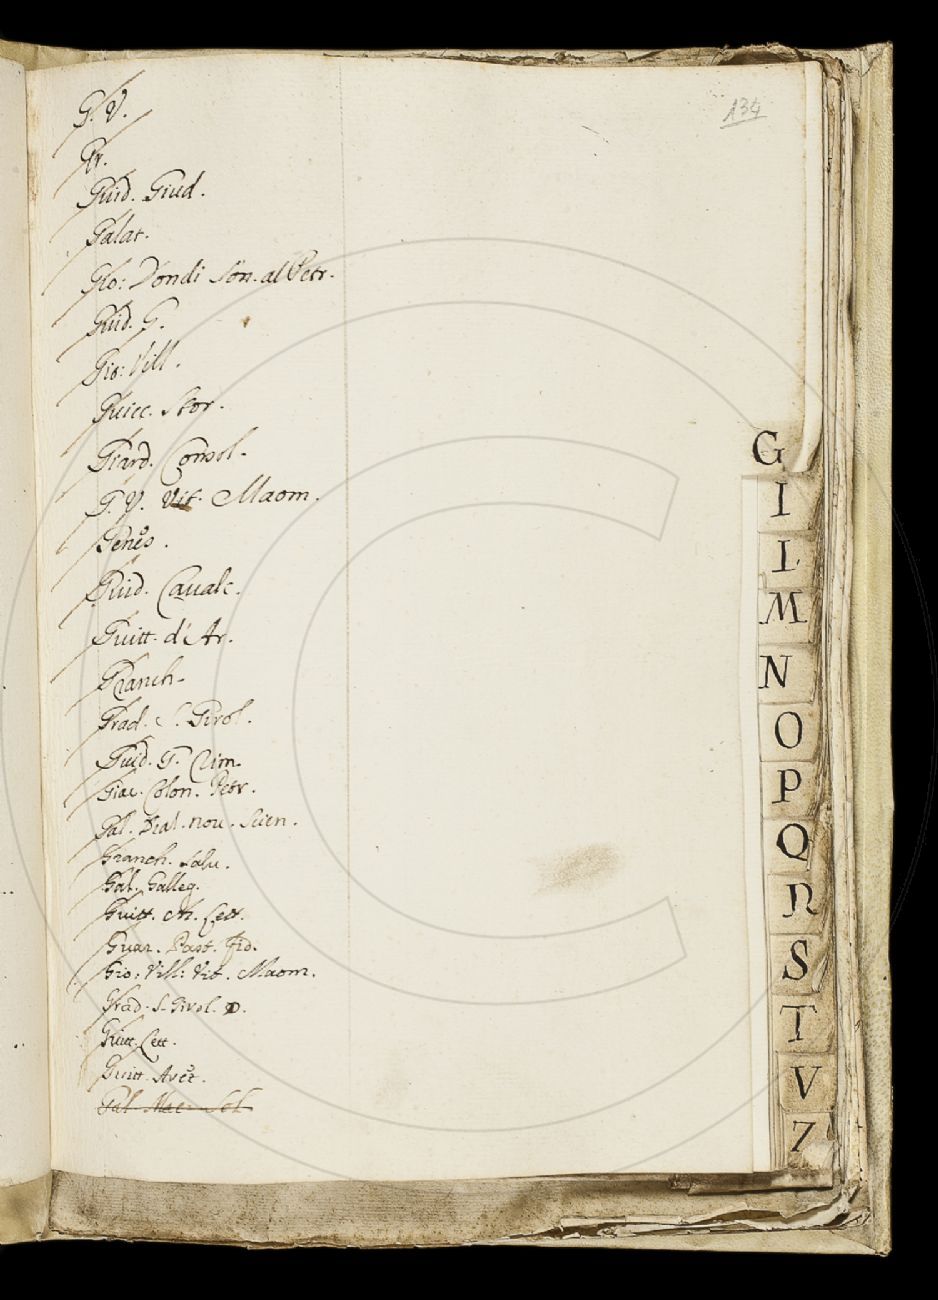 134
G. V.
Gr.
Guid. Giud.
Galat.
Gio: Dondi Son. al Petr.
Guid. G.
Gio: Vill.
Guicc. Stor.
Giard. Consol.
G. V. Vit. Maom.
Genes.
Guid. Cavalc.
Guitt. d'Ar.
Granch.
Grad. S. Girol.
Guid. G.
Giac. Colon. Petr.
Gal. Dial. nou. Scien.
Granch. Salu.
Gal. Galleg.
Guitt. Ar. Lett.
Guar. Past. Fid.
Gio: Vill: Vit. Maom.
Grad. S. Girol. D.
Guitt. Lett.
Guitt. Aret.
Gal. Mac. Sol.
G
I
L
M
N
O
P
Q
R
S
T
V
Z